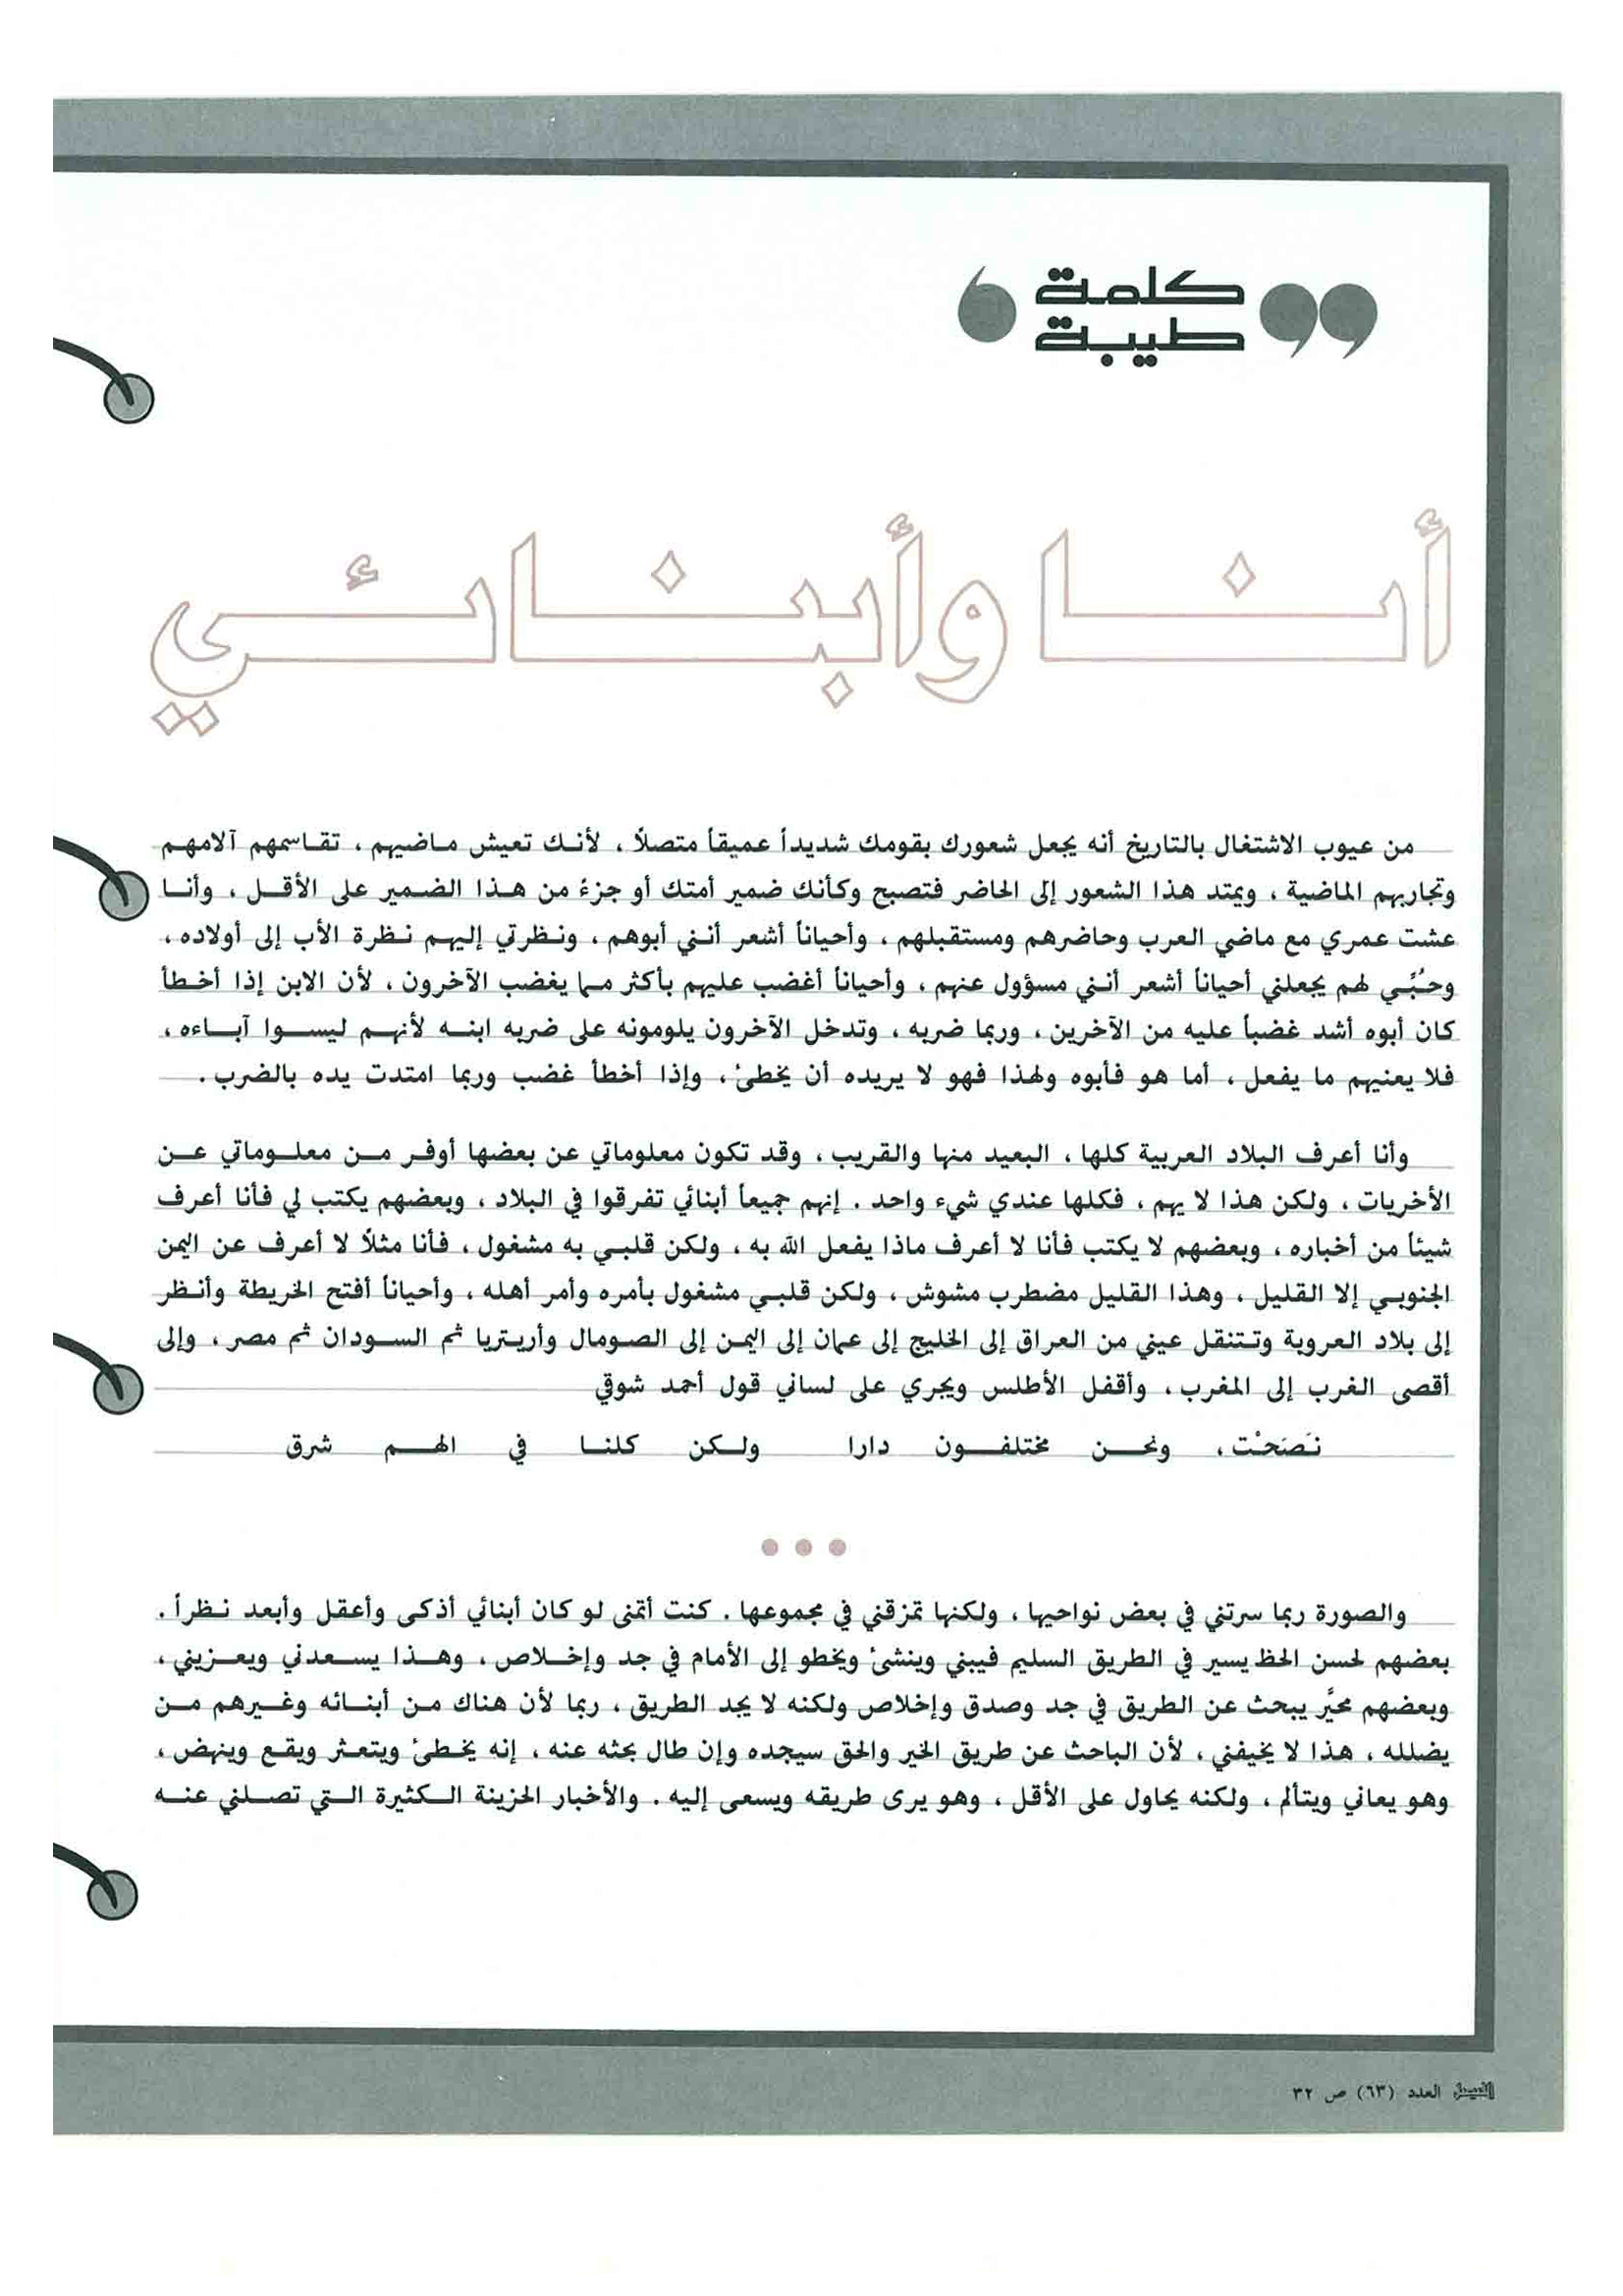 كلمة
طيبة
أنا وأبنائي
من عيوب الاشتغال بالتاريخ أنه يجعل شعورك بقومك شديداً عميقاً متصلاً ، لأنك تعيش ماضيهم ، تقاسمهم آلامهم
وتجاربهم الماضية ، ويمتد هذا الشعور إلى الحاضر فتصبح وكأنك ضمير أمتك أو جزءً من هذا الضمير على الأقل ، وأنا
عشت عمري مع ماضي العرب وحاضرهم ومستقبلهم ، وأحياناً أشعر أنني أبوهم ، ونظرتي إليهم نظرة الأب إلى أولاده ،
وحُبِّي لهم يجعلني أحياناً أشعر أنني مسؤول عنهم ، وأحياناً أغضب عليهم بأكثر مما يغضب الآخرون ، لأن الابن إذا أخطأ
كان أبوه أشد غضباً عليه من الآخرين ، وربما ضربه ، وتدخل الآخرون يلومونه على ضربه ابنه لأنهم ليسوا آباءه ،
فلا يعنيهم ما يفعل ، أما هو فأبوه ولهذا فهو لا يريده أن يخطئ ، وإذا أخطأ غضب وربما امتدت يده بالضرب .
وأنا أعرف البلاد العربية كلها ، البعيد منها والقريب ، وقد تكون معلوماتي عن بعضها أوفر من معلوماتي عن
الأخريات ، ولكن هذا لا يهم ، فكلها عندي شيء واحد . إنهم جميعاً أبنائي تفرقوا في البلاد ، وبعضهم يكتب لي فأنا أعرف
شيئاً من أخباره ، وبعضهم لا يكتب فأنا لا أعرف ماذا يفعل الله به ، ولكن قلبي به مشغول ، فأنا مثلاً لا أعرف عن اليمن
الجنوبي إلا القليل ، وهذا القليل مضطرب مشوش ، ولكن قلبي مشغول بأمره وأمر أهله ، وأحياناً أفتح الخريطة وأنظر
إلى بلاد العروبة وتتنقل عيني من العراق إلى الخليج إلى عمان إلى اليمن إلى الصومال وأريتريا ثم السودان ثم مصر ، وإلى
أقصى الغرب إلى المغرب ، وأقفل الأطلس ويجري على لساني قول أحمد شوقي
نَصَحْت ، ونحن مختلفون دارا ولكن كلنا في الهم شرق
والصورة ربما سرتني في بعض نواحيها ، ولكنها تمزقني في مجموعها . كنت أتمنى لو كان أبنائي أذكى وأعقل وأبعد نظراً .
بعضهم لحسن الحظ يسير في الطريق السليم فيبني وينشئ ويخطو إلى الأمام في جد وإخلاص ، وهذا يسعدني ويعزيني ،
وبعضهم محيَّر يبحث عن الطريق في جد وصدق وإخلاص ولكنه لا يجد الطريق ، ربما لأن هناك من أبنائه وغيرهم من
يضلله ، هذا لا يخيفني ، لأن الباحث عن طريق الخير والحق سيجده وإن طال بحثه عنه ، إنه يخطئ ويتعثر ويقع وينهض ،
وهو يعاني ويتألم ، ولكنه يحاول على الأقل ، وهو يرى طريقه ويسعى إليه . والأخبار الحزينة الكثيرة التي تصلني عنه
الفيصل العدد (٦٣) ص ٣٢